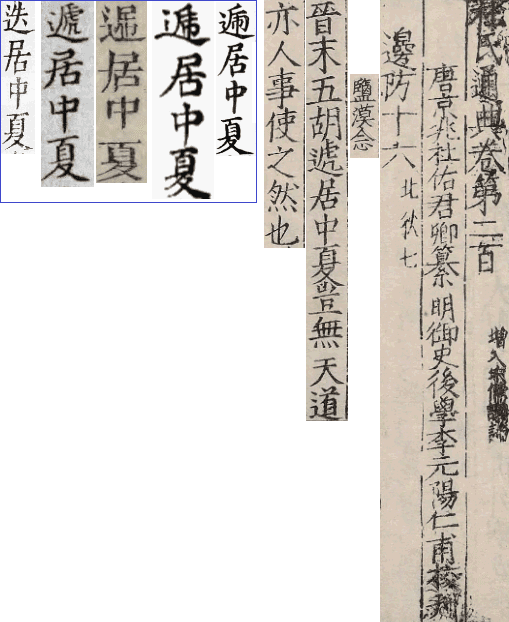 杜氏通典卷第二百
增入宋儒議論
唐京兆杜佑君卿纂 明御史後學李元陽仁甫校刊
邊防十六
北狄七
鹽漠念
晉末五胡遞居中夏豈無天道
亦人事使之然也
遍居中夏
遞居中夏
居中夏
遞居中夏
迭居中夏